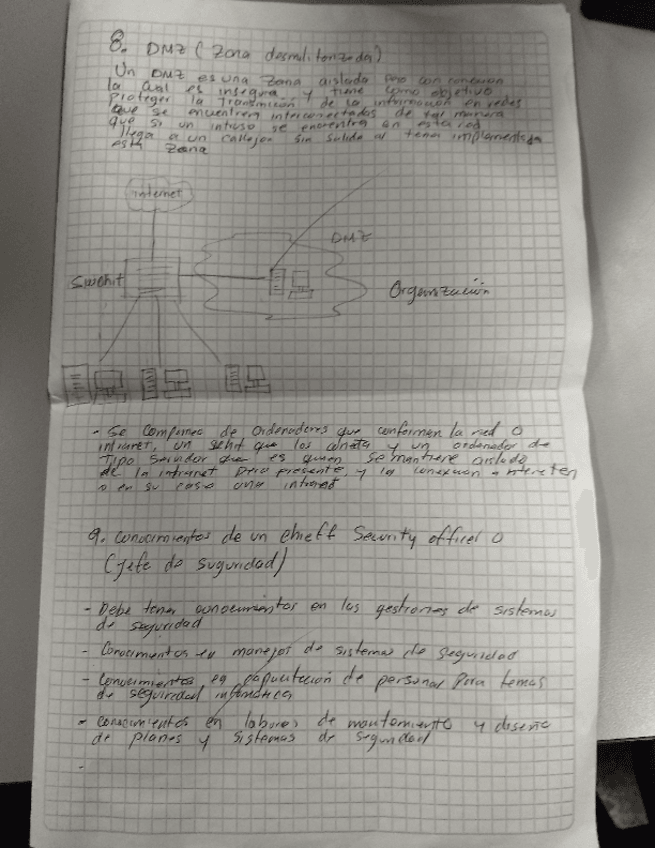 8. DMZ ( Zona desmilitarizada)
Un DMZ es una zona aislada pero con conexion
la cual es insegura y tiene como objetivo
proteger la transmición de la información en redes
que se encuentren interconectados de tal manera
que si un intruso se encuentra en esta red
llega a un callejon sin salida al tener implementada
esta zona
internet
DMZ
Swchit
Organización
- Se compones de ordenadores que conforman la red o
intranet, un que los coneta y un ordenador de
tipo servidor que es quien se mantiene aislado
de la intranet pero presente y la conexion a
o en su caso una intranet
9. Conocimientos de un chieff Security officel o
(jefe de suguridad)
- Debe tener conocimientos en las gestiones de sistemas
de seguridad
- Conocimientos en manejos de sistemas de seguridad
- Conocimientos en capacitación de personal para temas
de seguridad informatica
- Conocimientos en labores de mantamiento y diseño
de planes y sistemas de seguridad
-